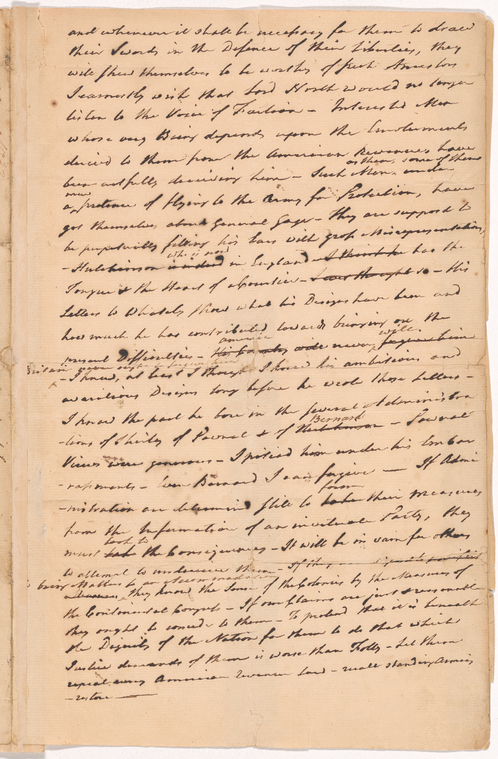 and whenever it shall be necessary for them to draw
their Swords in the Defence of their Liberties, they
will shew themselves to be worthy of such Ancestors
I earnestly wish that Lord North would no longer
listen to the Voice of Faction - Interested Men
whose very Being depends upon the Emoluments
derived to them from the American Revenues have
been artfully deceiving him - Such Men, under
or rather some of them
a pretence of flying to the Army for Protection, have
got themselves about General Gage - they are supposd to
be perpetually filling his Ears with gross Misrepresentations,
who is now
- Hutchinson in England has the
Tongue & the Heart of a Courtier - His
Letters to Whately show what his Designs have been and
how much he has contributed towards bringing on the
America will
present Difficulties - never forgive him
- I knew, at least I thought I knew his ambitious and
avaricious Designs long before he wrote those Letters -
I know the part he bore in the several Administra
Bernard
tions of Shirley of Pownal & of Hutchinson - Pownal
Views were generous - I pitied him under his Embar
rasments - Even Bernard I can forgive - If Admi
form
nistration are determind still to take their Measures
from the Information of an inveterate Party, they
look to
must the Consequences - It will be in vain for others
to attempt to undeceive them - If they
bring Matters to an accommodation
they know the Sense of the Colonies by the Measures of
the Continental Congress - If our Claims are just & reasonable
they ought to concede to them - To pretend that it is beneath
the Dignity of the Nation for them to do that which
Justice demands of them is worse than Folly - Let them
repeal every American Revenue Law - recall standing Armies
- restore